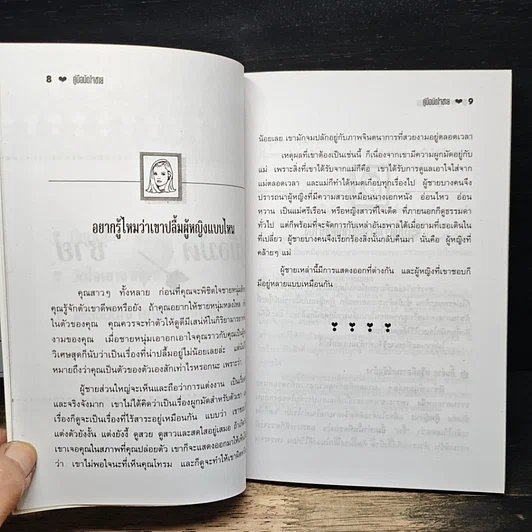 8 ❤ คู่มือมัดใจชาย
อยากรู้ไหมว่าเขาปลื้มผู้หญิงแบบไหน
คุณสาวๆ ทั้งหลาย ก่อนที่คุณจะพิชิตใจชายหนุ่ม
คุณรู้จักตัวเขาดีพอหรือยัง ถ้าคุณอยากให้ชายหนุ่มหลงใหล
ในตัวของคุณ คุณควรจะทำตัวให้ดูดีมีเสน่ห์ในกิริยามารยาท
งามของคุณ เมื่อชายหนุ่มเอาอกเอาใจคุณราวกับคุณเป็น
วิเศษสุดก็นับว่าเป็นเรื่องที่น่าปลื้มอยู่ไม่น้อยเลยล่ะ แต่
หมายถึงว่าคุณเป็นตัวของตัวเองสักเท่าไรหรอกนะ เพราะว่า
ผู้ชายส่วนใหญ่จะเห็นและถือว่าการแต่งงาน เป็น
และจริงจังมาก เขาไม่ได้คิดว่าเป็นเรื่องผูกมัดสำหรับตัวเขา
เรื่องก็ดูจะเป็นเรื่องที่ไร้สาระอยู่เหมือนกัน แบบว่า
แต่งตัวยังงั้น แต่งยังงี้ ดูสวย ดูสาวและสดใสอยู่เสมอ
เขาเจอคุณในสภาพที่คุณปล่อยตัว เขาก็จะแสดงออกมาให้
ว่า เขาไม่พอใจนะที่เห็นคุณโทรม และก็ดูจะทำให้เขา
คู่มือมัดใจชาย ❤ 9
น้อยเลย เขามักจมปลักอยู่กับภาพจินตนาการที่สวยงามอยู่ตลอดเวลา
เหตุผลที่เขาต้องเป็นเช่นนี้ ก็เนื่องจากเขามีความผูกมัดอยู่กับ
แม่ เพราะสิ่งที่เขาได้รับจากแม่ก็คือ เขาได้รับการดูแลเอาใจใส่จาก
แม่ตลอดเวลา และแม่ก็ทำได้หมดเกือบทุกเรื่องไป ผู้ชายบางคนจึง
ปรารถนาผู้หญิงที่มีความสวยเหมือนนางเอกหนัง อ่อนไหว อ่อน
หวาน เป็นแม่ศรีเรือน หรือหญิงสาวที่ใจเด็ด ที่ภายนอกก็ดูธรรมดา
ทั่วไป แต่ก็พร้อมที่จะจัดการกับเหล่าอันธพาลได้เมื่อยามที่เธอเดินใน
ที่เปลี่ยว ผู้ชายบางคนจึงเรียกร้องสิ่งนั้นกลับคืนมา นั่นคือ ผู้หญิงที่
คล้ายๆ แม่
ผู้ชายเหล่านี้มีการแสดงออกที่ต่างกัน และผู้หญิงที่เขาชอบก็
มีอยู่หลายแบบเหมือนกัน